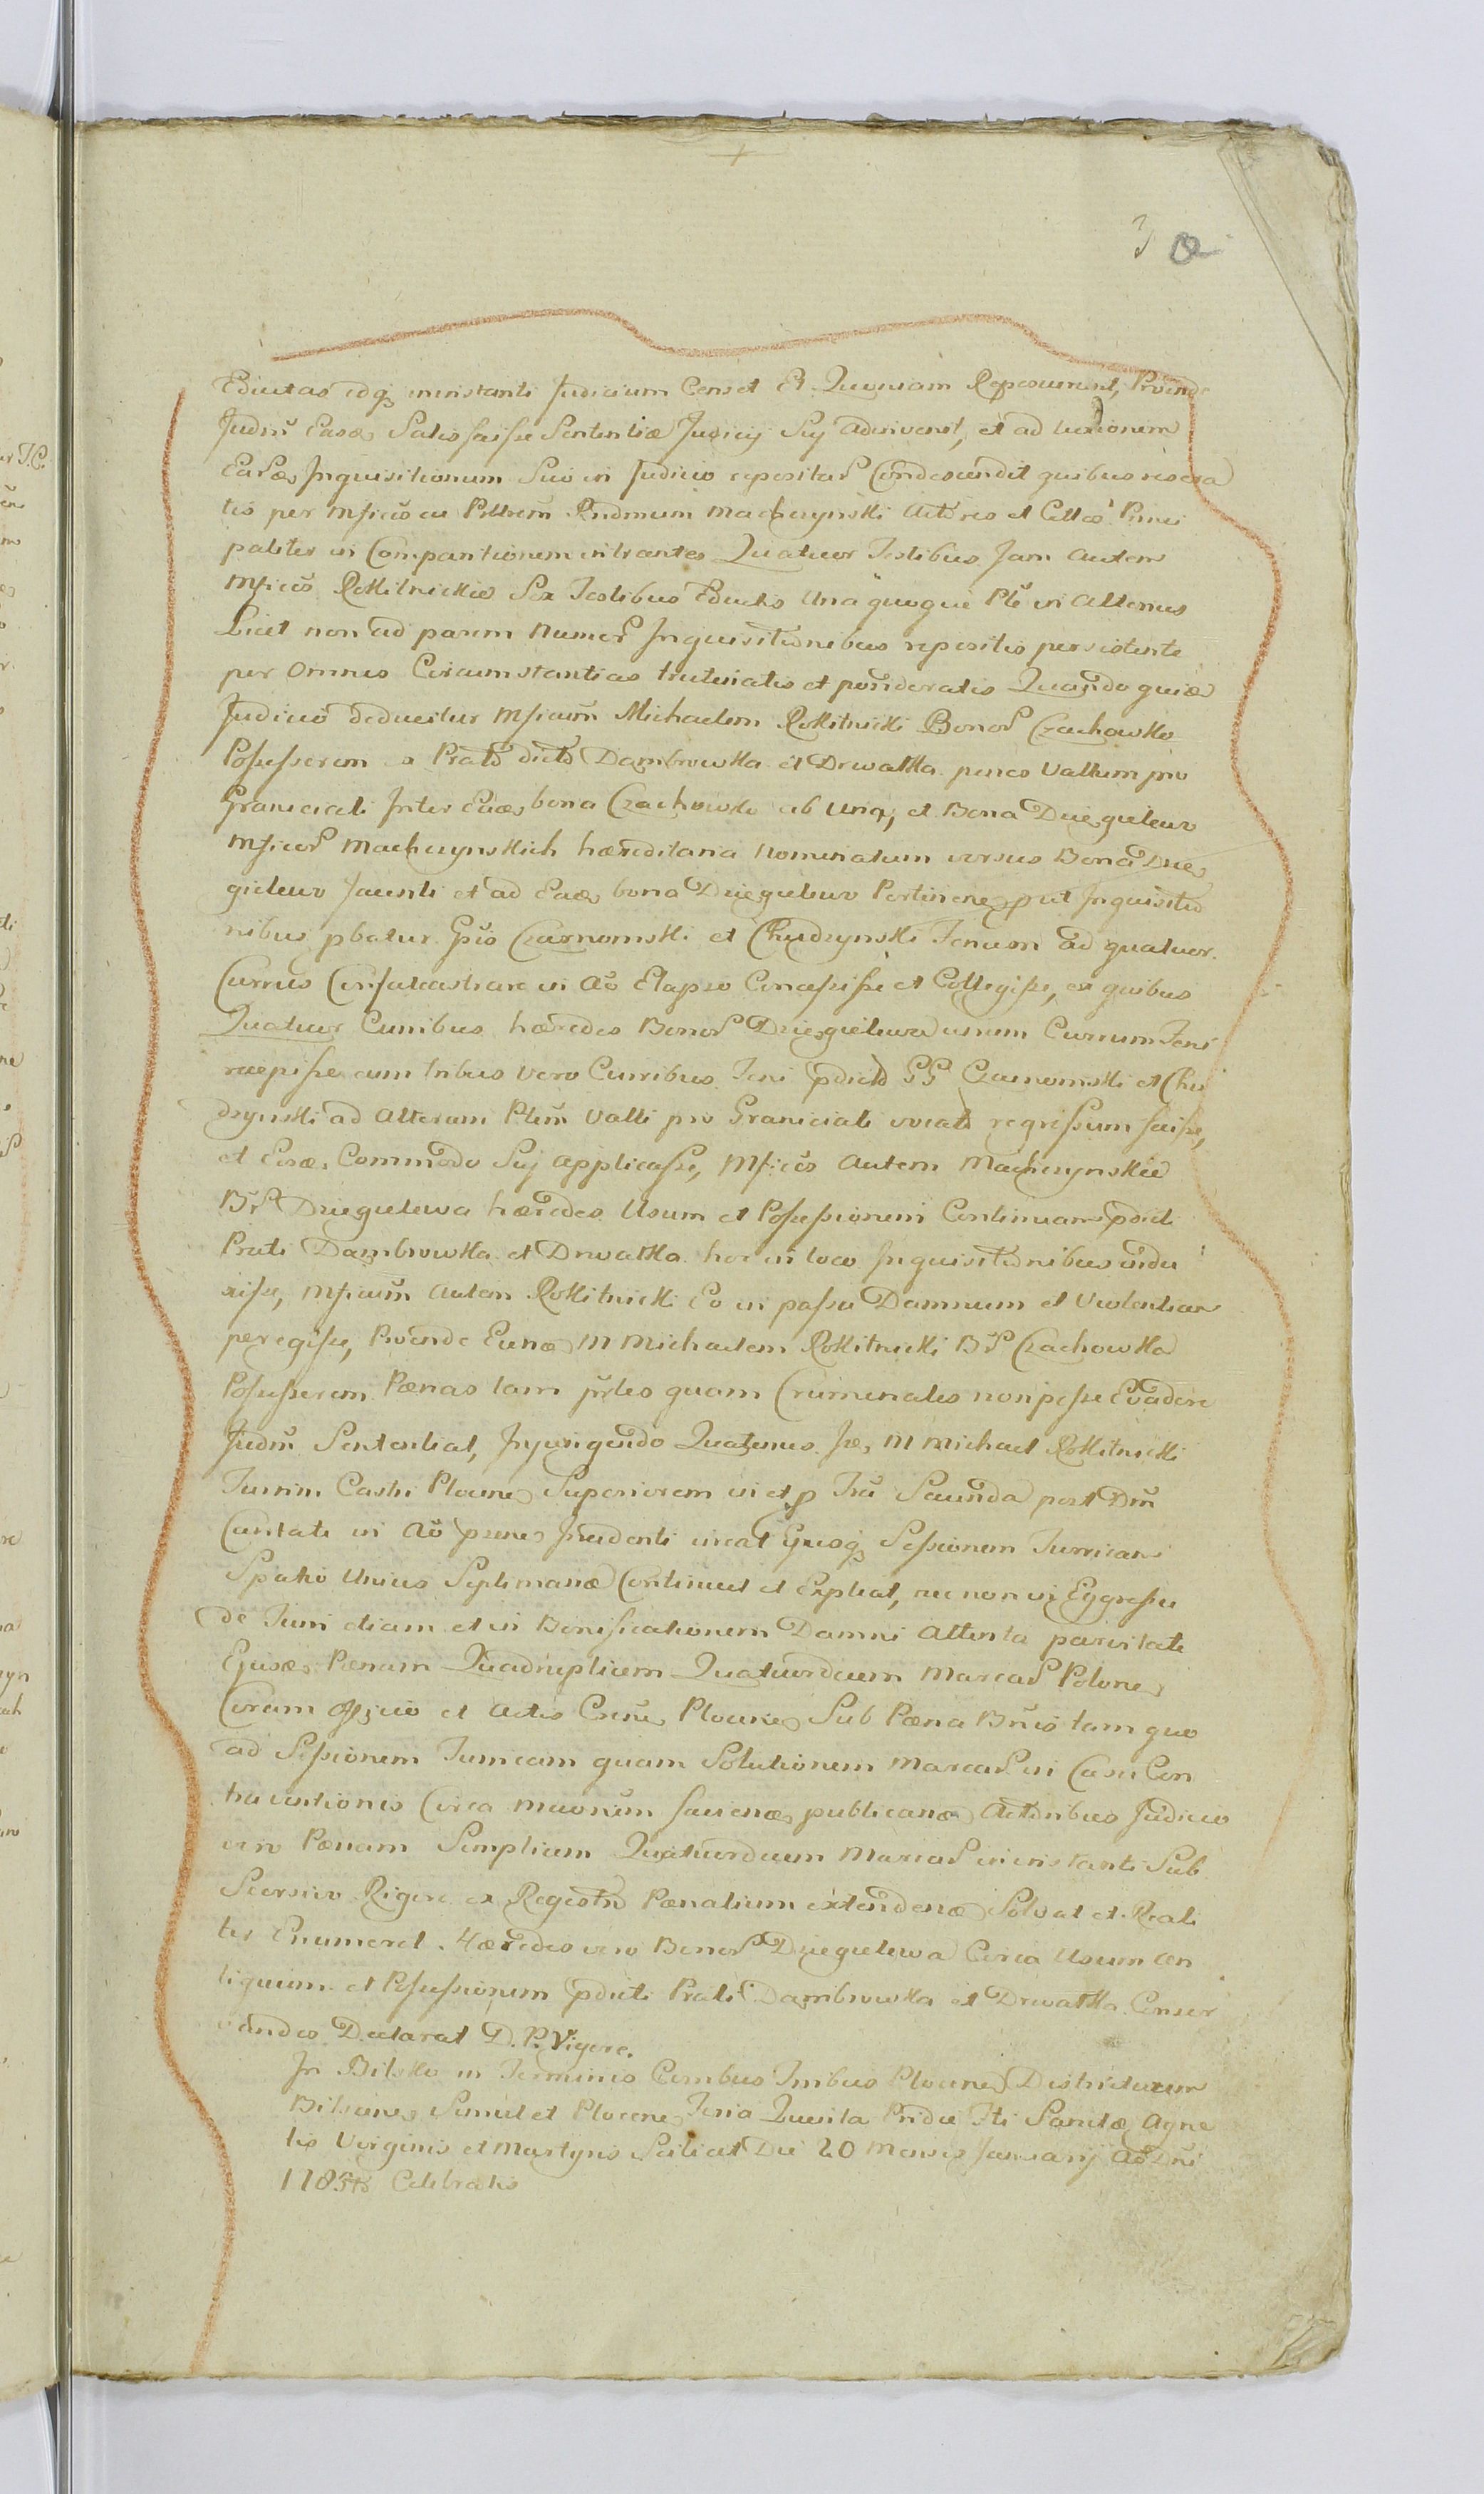 3
Eductas idq, in instanti Judicium Censet Et Quoniam Reposuerunt, Proinde
Judm̃ Easdẽ Satisfaisse Sententiæ Judicij Sui adinvenit, et ad lectionem
Earũdẽ Inquisitionum Suo in Judicio repositar Condescendit quibus resera
tis per Mficos
paliter in Comparitionem intrantes Quatuor Testibus Jam autem
Mficos Rokitnickie Sex Testibus Eductis Una quoque Pte in Alterius
Licet non ad parem Numer Inquisitionibus repositis persistente
per Omnes Circumstantias trutinatis et ponderatis Quando quidẽ
Judicio deducitur Mficum̃ Michaelem Rokitnicki Bonor Czachowko
Possessorem a Prato dicto Dambrowka et Drwalka penes Vallum pro
Graniciali Inter Eadẽ bona Czachowko ab Una, et Bona Dziegielewo
Mficor Machczynskich hæreditaria Nominatum versus Bona Dzie
gielewo Jacenti et ad Eadẽ bona Dziegielewo Pertinenẽ put Inquisitio
nibus pbatur Gsos Czarnomski et Chudzynski Fenum ad quatuor
Currus Confalcastrare in Aõ Elapso Concepisse et Collegisse, ex quibus
Quatuor Curribus hæredes Bonor Dziegielewa unum Currum Feni
recepisse cum tribus Vero Curribus Feni pdictõ GG Czarnomski et Chu
dzynski ad Alteram Ptem̃ Valli pro Graniciali vocati regressum faisse,
et Eosdẽ Commodo Suj applicasse, Mficos Autem Machczynskie
Br Dziegielewa hæredes Usum et Possessionem Continuam pdicti
Prati Dambrowka et Drwalka hoc in loco Inquisitionibus indu
xisse, Mficum̃ autem Rokitnicki Eo in passu Damnum et Violentiam
peregisse, Proinde Eundẽ M Michaelem Rokitnicki Br Czachowka
Possessorem Pænas tam quam Criminales non posse Evadere
Judm̃ Sententiat, Injungendo Quatenus Idẽ M Michael Rokitnicki
Turrim Castri Plocenẽ Superiorem in et p Fra Secunda post Dm̃
Cantate in Aõ præsẽ Incidenti ineat Ejusq, Sessionem Turricam
Spatio Unius Septimanæ Continuet et Expleat, nec non in Eggressu
de Turri etiam et in Bonificationem Damni Attenta parvitate
Ejusdẽ Pænam Quadruplicem Quatuordecim Marcar Polonẽ
Coram Officio et Actis Plocenẽ Sub Pæna Bnis tam quo
ad Sessionem Turricam quam Solutionem Marcar in Casu Con
traventionis Circa publicandẽ Actoribus Judicio
vero Pænam Simplicem Quatuordecim Marcar in instanti Sub
Rigore ex Regestro Pænalium extendendẽ Solvat et Reali
ter Enumeret. Hæredes vero Bonor Dziegielewa Circa Usum an
tiquum et Possessionem pdicti Prati Dambrowka et Drwalka Conser
vandos Declarat D. P. Vigore.
In Bilsko in Terminis Plocenẽ Districtuum
Bilscenẽ Simul et Plocenẽ Feria Quinta Pridie Fti Sanctæ Agne
tis Virginis et Martyris Scilicet Die 20 Mensis Januarij Aõ Dni
1785to Celebratis